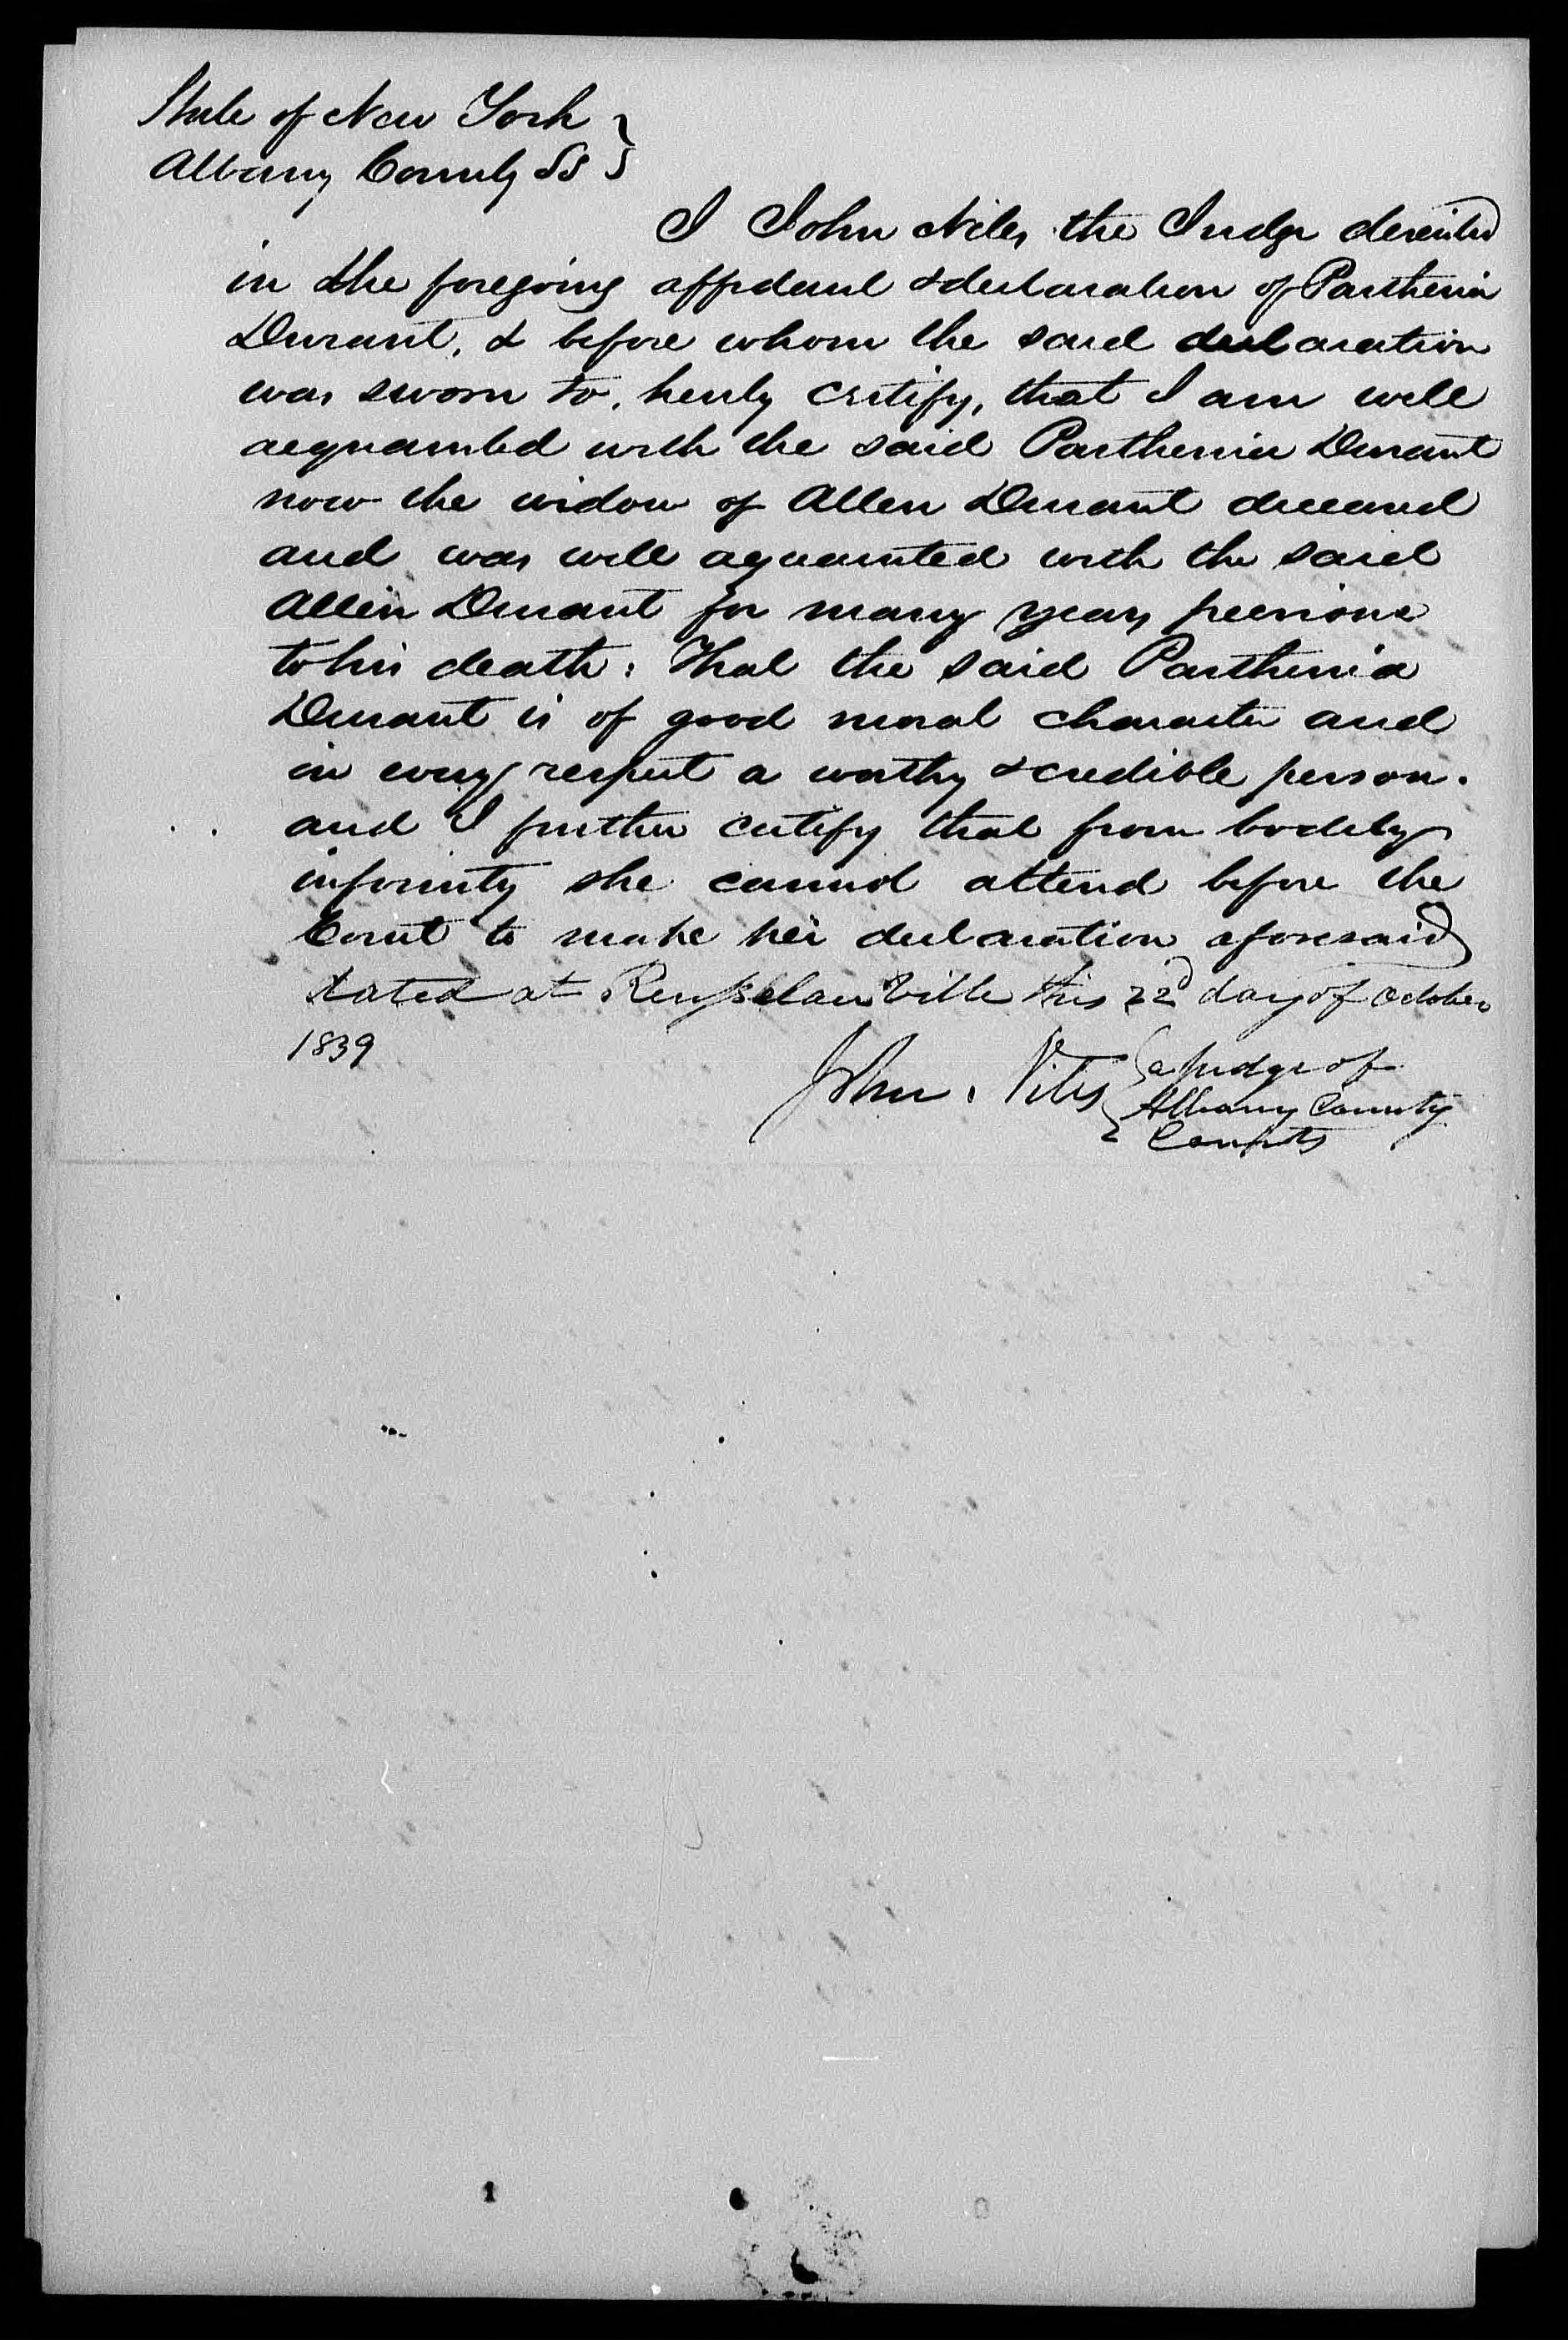 State of New York }
Albany County SS }
I John Niles the Judge described
in the foregoing affidavit & declaration of Parthenia
Durant, & before whom the said declaration
was sworn to, hereby certify, that I am well
acquainted with the said Parthenia Durant
now the widow of Allen Durant deceased
and was well aquainted with the said
Allen Durant for many years previous
to his death: That the said Parthenia
Durant is of good moral character and
in every respect a worthy & credible person.
and I further certify that from bodily
infirmity she cannot attend before the
Court to make her declaration aforesaid
Dated at Rensselaerville this 22d day of October
1839
John Niles { a Judge of
Albany County
Courts